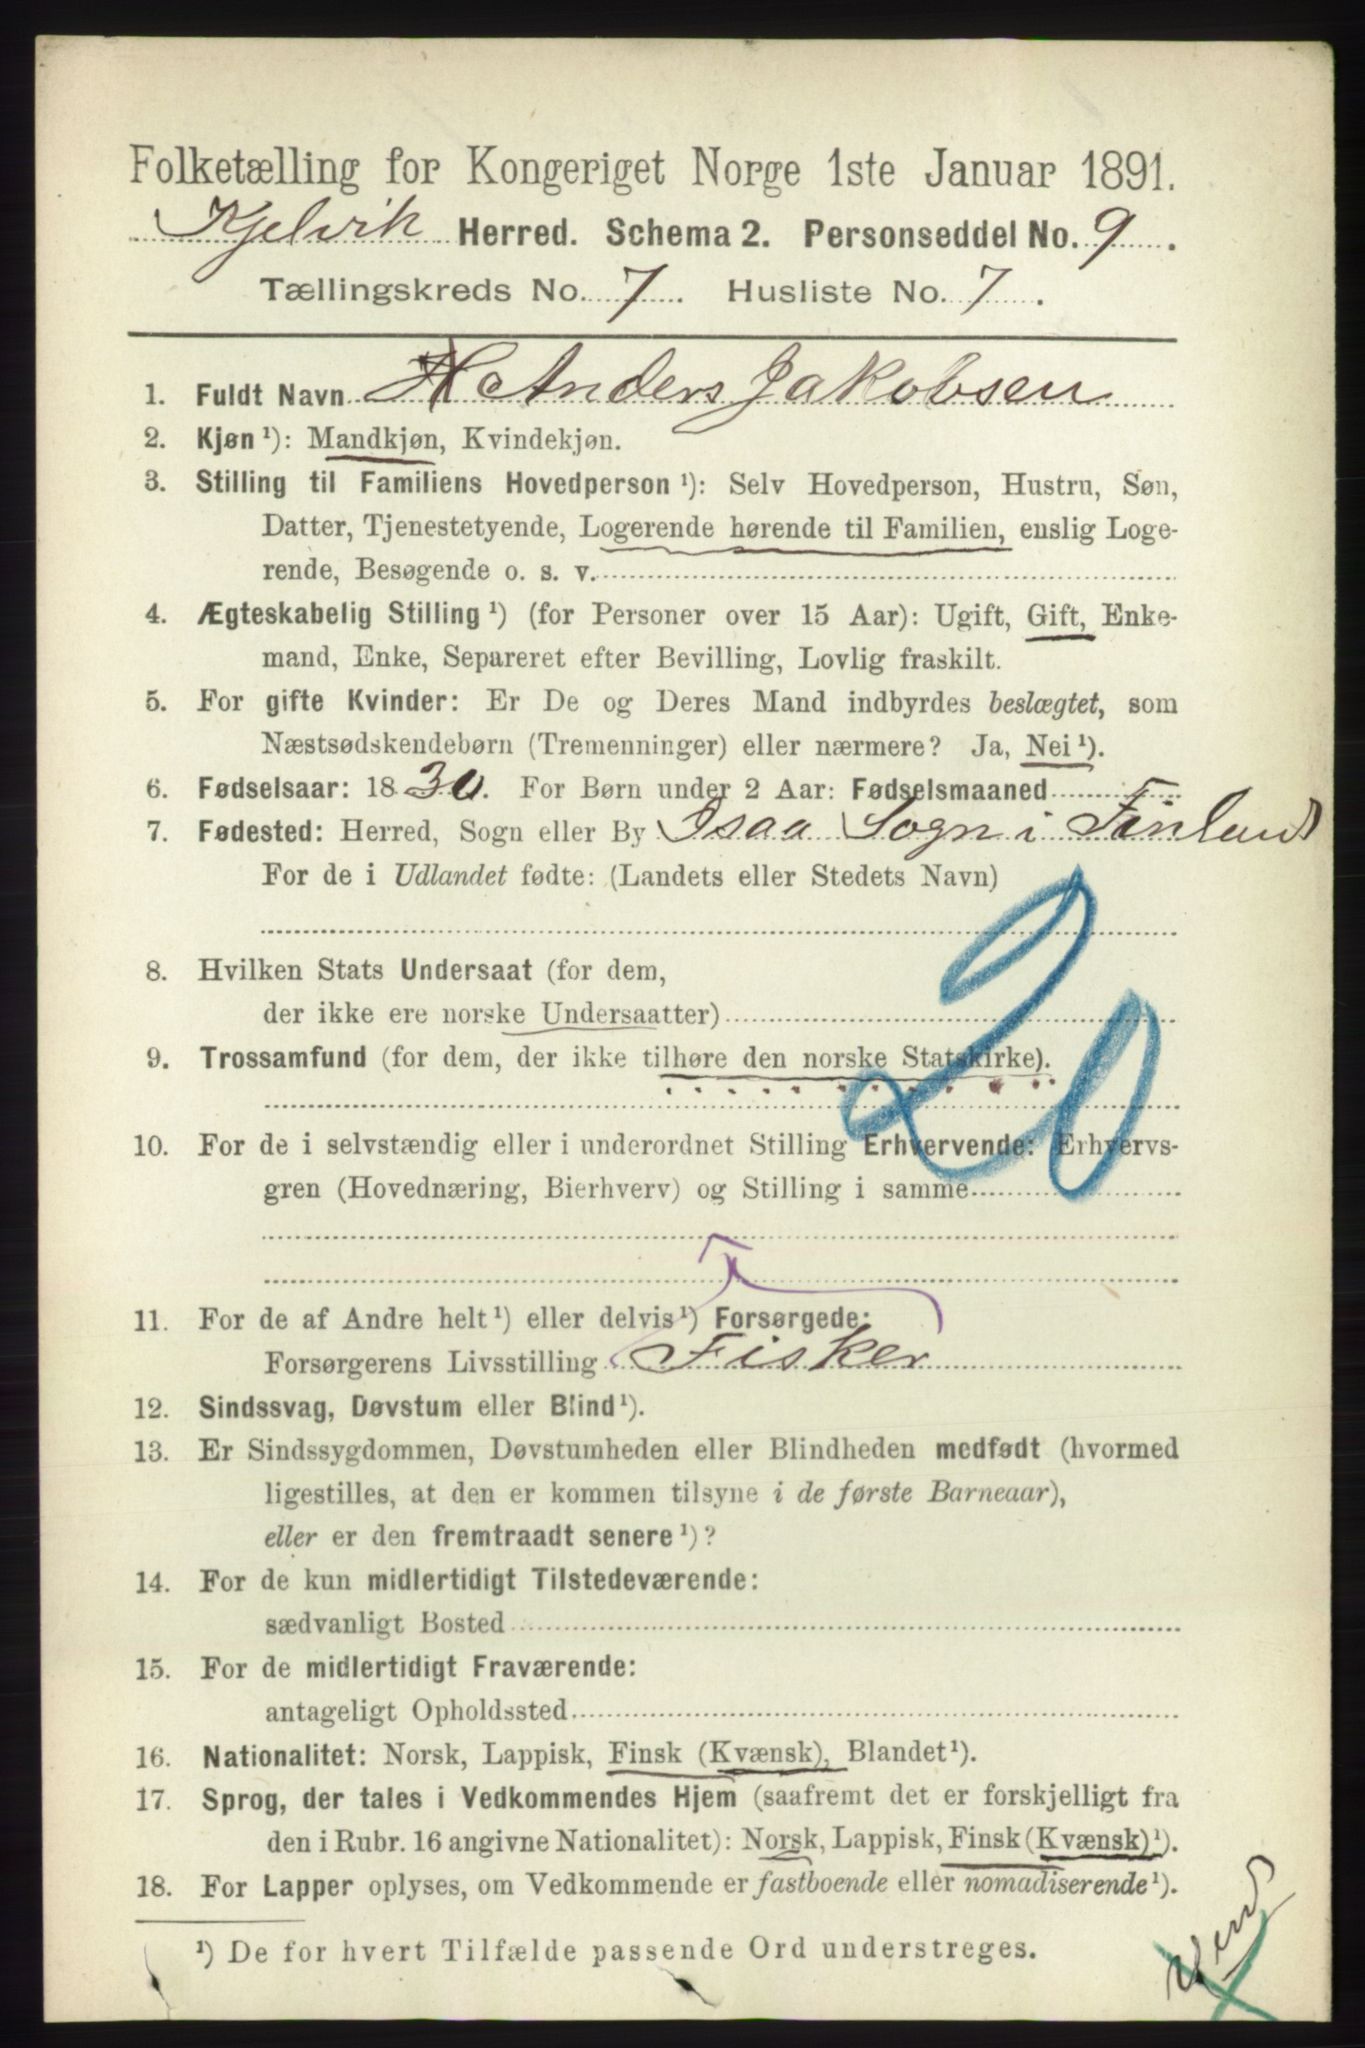 Folketælling for Kongeriget Norge 1ste Januar 1891.
Kjelvik Herred. Schema 2. Personseddel No. 9.
Tællingskreds No. 7. Husliste No. 7.
1. Fuldt Navn Anders Jakobsen
2. Kjøn ¹): Mandkjøn, Kvindekjøn.
3. Stilling til Familiens Hovedperson ¹): Selv Hovedperson, Hustru, Søn,
Datter, Tjenestetyende, Logerende hørende til Familien, enslig Loge-
rende, Besøgende o. s. v.
4. Ægteskabelig Stilling ¹) (for Personer over 15 Aar): Ugift, Gift, Enke-
mand, Enke, Separeret efter Bevilling, Lovlig fraskilt.
5. For gifte Kvinder: Er De og Deres Mand indbyrdes beslægtet, som
Næstsødskendebørn (Tremenninger) eller nærmere? Ja, Nei ¹).
6. Fødselsaar: 1830. For Børn under 2 Aar: Fødselsmaaned
7. Fødested: Herred, Sogn eller By Isaa Sogn i Finland
For de i Udlandet fødte: (Landets eller Stedets Navn)
20
8. Hvilken Stats Undersaat (for dem,
der ikke ere norske Undersaatter)
9. Trossamfund (for dem, der ikke tilhøre den norske Statskirke).
10. For de i selvstændig eller i underordnet Stilling Erhvervende: Erhvervs-
gren (Hovednæring, Bierhverv) og Stilling i samme
11. For de af Andre helt ¹) eller delvis ¹) Forsørgede:
Forsørgerens Livsstilling Fisker
12. Sindssvag, Døvstum eller Blind ¹).
13. Er Sindssygdommen, Døvstumheden eller Blindheden medfødt (hvormed
ligestilles, at den er kommen tilsyne i de første Barneaar),
eller er den fremtraadt senere ¹)?
14. For de kun midlertidigt Tilstedeværende:
sædvanligt Bosted
15. For de midlertidigt Fraværende:
antageligt Opholdssted
16. Nationalitet: Norsk, Lappisk, Finsk (Kvænsk), Blandet ¹).
17. Sprog, der tales i Vedkommendes Hjem (saafremt det er forskjelligt fra
den i Rubr. 16 angivne Nationalitet): Norsk, Lappisk, Finsk (Kvænsk) ¹).
18. For Lapper oplyses, om Vedkommende er fastboende eller nomadiserende ¹).
¹) De for hvert Tilfælde passende Ord understreges.
Vend